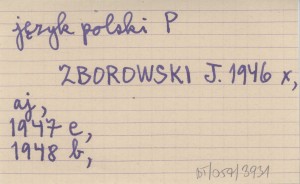 język polski P
ZBOROWSKI J. 1946 x,
aj,
1947 e,
1948 b,
BT/057/3931